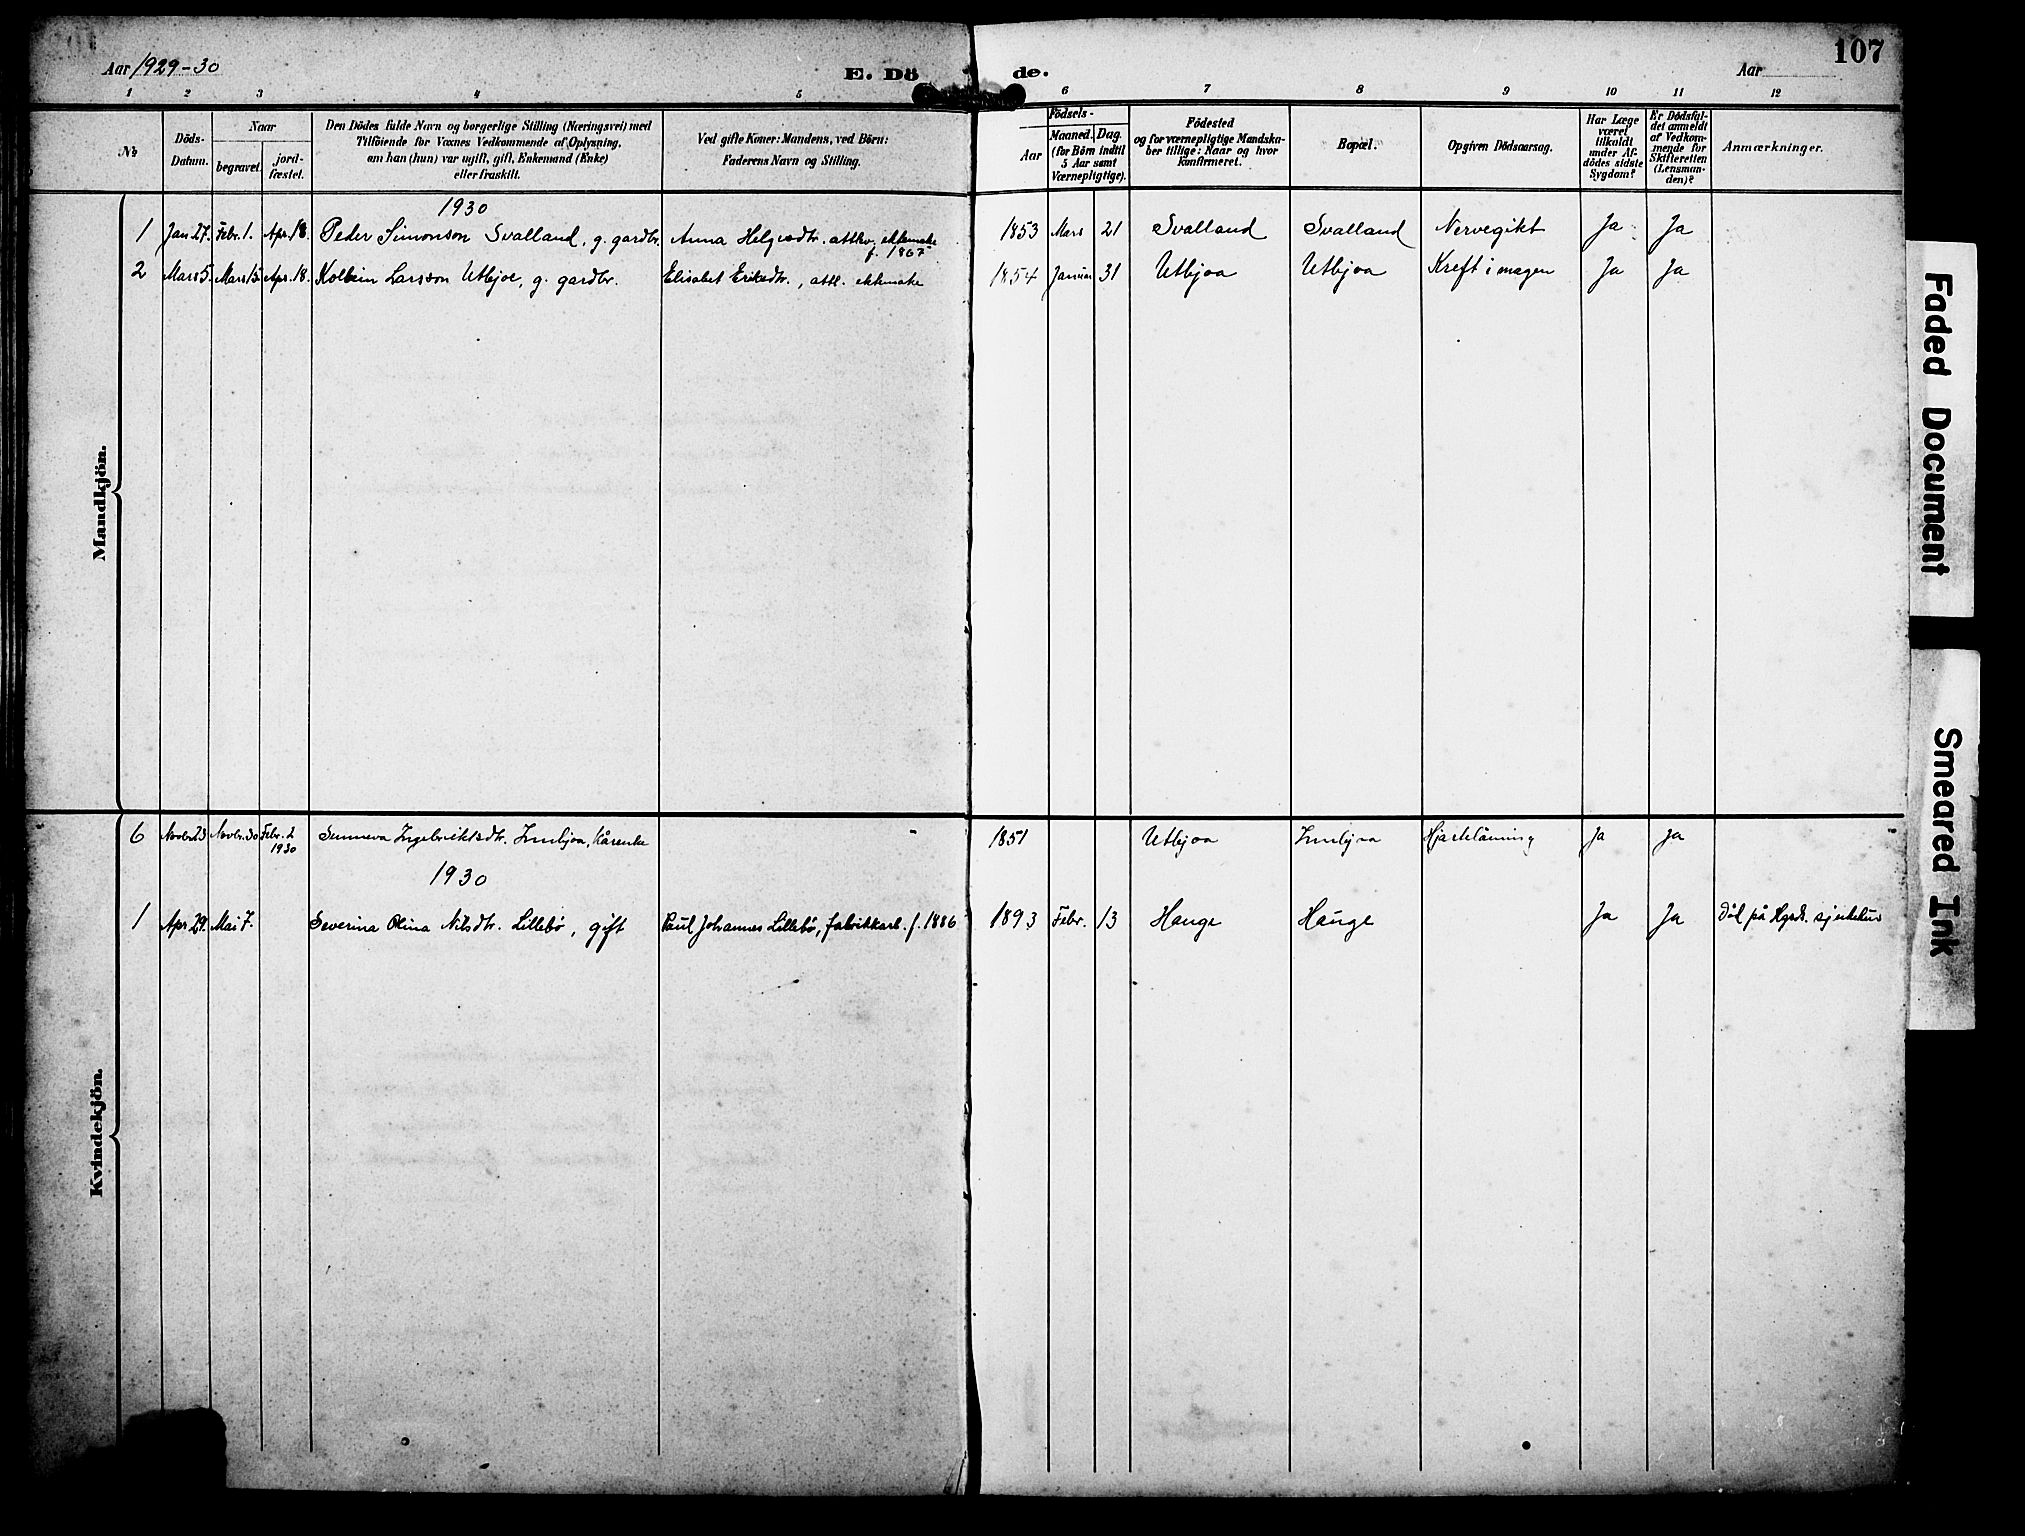 Aar 1929-30
E. Döde.
Aar
107
1 2 3 4 5 6 7 8 9 10 11 12
№
Döds-
Datum.
Naar
begravet.
jord-
fæstet.
Den Dödes fulde Navn og borgerlige Stilling (Næringsvei) med
Tilföiende for Voxnes Vedkommende af Oplysning,
om han (hun) var ugift, gift, Enkemand (Enke)
eller fraskilt.
Ved gifte Koner: Mandens, ved Börn:
Faderens Navn og Stilling.
Födsels-
Aar
Maaned. Dag.
(for Börn indtil
5 Aar samt
Værnepligtige).
Födested
og for værnepligtige Mandska-
ber tillige: Naar og hvor
konfirmeret.
Bopæl.
Opgiven Dödsaarsag.
Har Læge
været
tilkaldt
under Af-
dödes sidste
Sygdom?
Er Dödsfal-
det anmeldt
af Vedkom-
mende for
Skifteretten
(Lensman-
den)?
Anmærkninger.
Mandkjön.
1930
1 Jan 27. Febr. 1. Apr. 18. Peder Simonson Svalland, g. gardbr. Anna Helgesdtr. attlev. ektemake f. 1867 1853 Mars 21 Svalland Svalland Nervegikt Ja Ja
2 Mars 5. Mars 15. Apr. 18. Kolbein Larsson Utbjoe, g. gardbr. Elisabet Eriksdtr., attl. ektemake 1854 Januar 31 Utbjoa Utbjoa Kreft i magen Ja Ja
Kvindekjön.
6 Novbr. 23 Novbr. 30 Febr. 2 1930 Sunneva Ingebriktsdtr. Innbjoa, kårenke 1851 Utbjoa Innbjoa Hjartelåming Ja Ja
1930
1 Apr 29. Mai 7. Severina Olina Nilsdtr. Lillebø, gift Paul Johannes Lillebø, fabrikkarb. f. 1886 1893 Febr. 13 Hauge Hauge Ja Ja Död på Hgsds. sjukehus
Faded Document
Smeared Ink